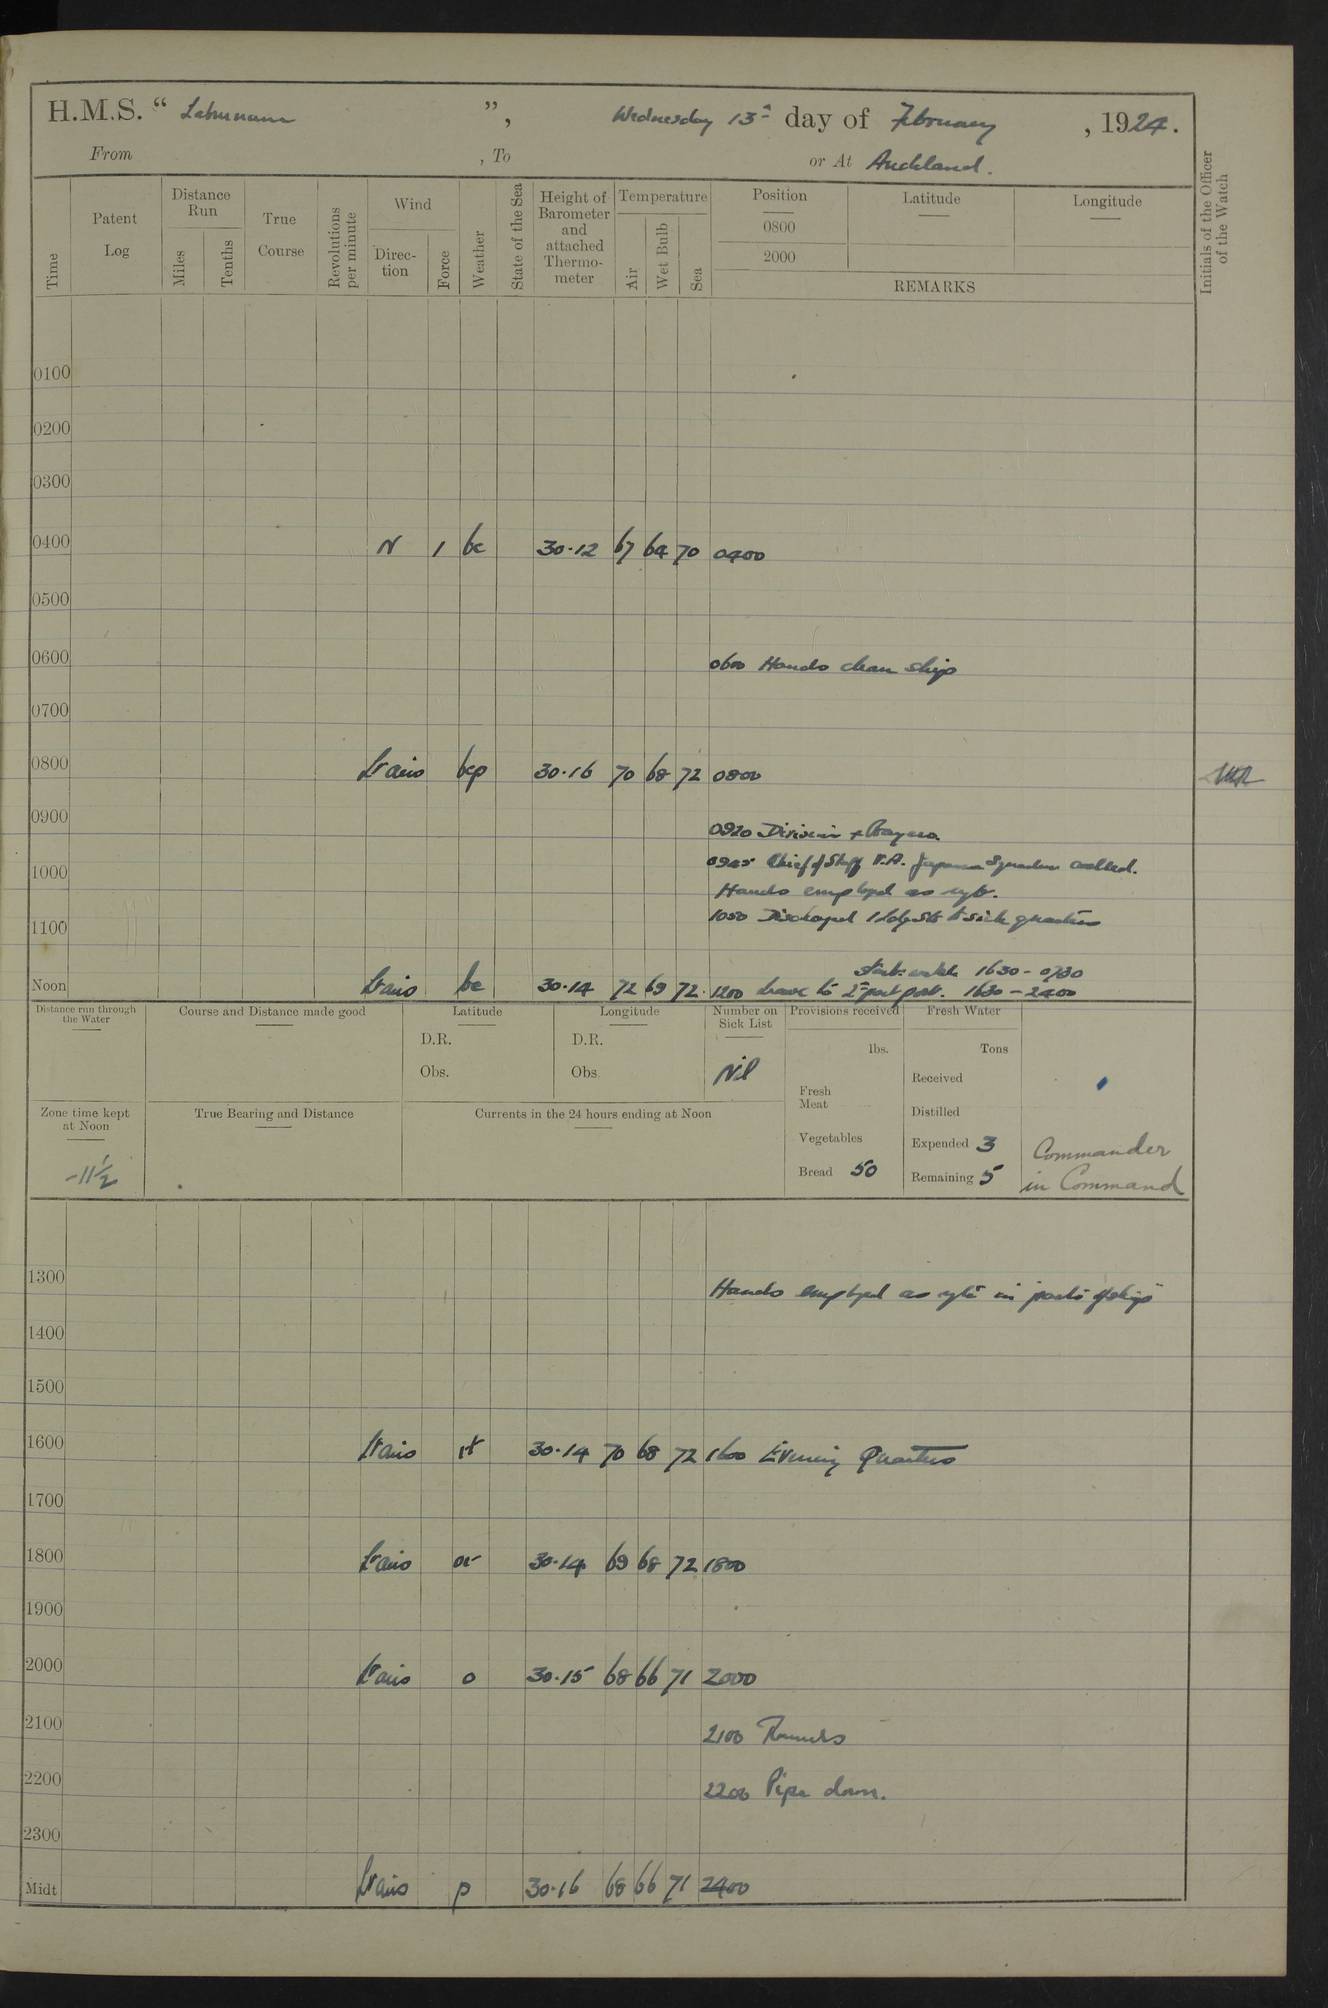 H.M.S. “ Laburnum ”, Wednesday 13th day of February , 1924.
From , To or At Auckland.
Time
Patent Log
Distance Run
Miles
Tenths
True Course
Revolutions per minute
Wind
Direction
Force
Weather
State of the Sea
Height of Barometer and attached Thermometer
Temperature
Air
Wet Bulb
Sea
Position
0800
2000
Latitude
Longitude
REMARKS
Initials of the Officer of the Watch
0100
0200
0300
0400 N 1 bc 30.12 67 64 70 0400
0500
0600 0600 Hands clean ship
0700
0800 Lt airs bcp 30.16 70 68 72 0800
0900 0920 Division + Prayers
0945 Chief of Staff V.A. Japanese Squadron called.
1000 Hands employed as reqte.
1100 1050 Discharged 1 to sick quarters
Starb. watch 1630 - 0730
Noon Lt airs bc 30.14 72 69 72 1200 Leave to 2nd part port. 1630 - 2400
Distance run through the Water
Course and Distance made good
Latitude
D.R.
Obs.
Longitude
D.R.
Obs.
Number on Sick List
Nil
Provisions received
lbs.
Fresh Meat
Vegetables
Bread 50
Fresh Water
Tons
Received
Distilled
Expended 3
Remaining 5
Zone time kept at Noon
-11½
True Bearing and Distance
Currents in the 24 hours ending at Noon
Commander
in Command
1300 Hands employed as reqte in parts of ship
1400
1500
1600 Lt airs 30.14 70 68 72 1600 Evening Quarters
1700
1800 Lt airs or 30.14 69 68 72 1800
1900
2000 Lt airs o 30.15 68 66 71 2000
2100 2100 Rounds
2200 2200 Pipe down.
2300
Midt Lt airs p 30.16 68 66 71 2400